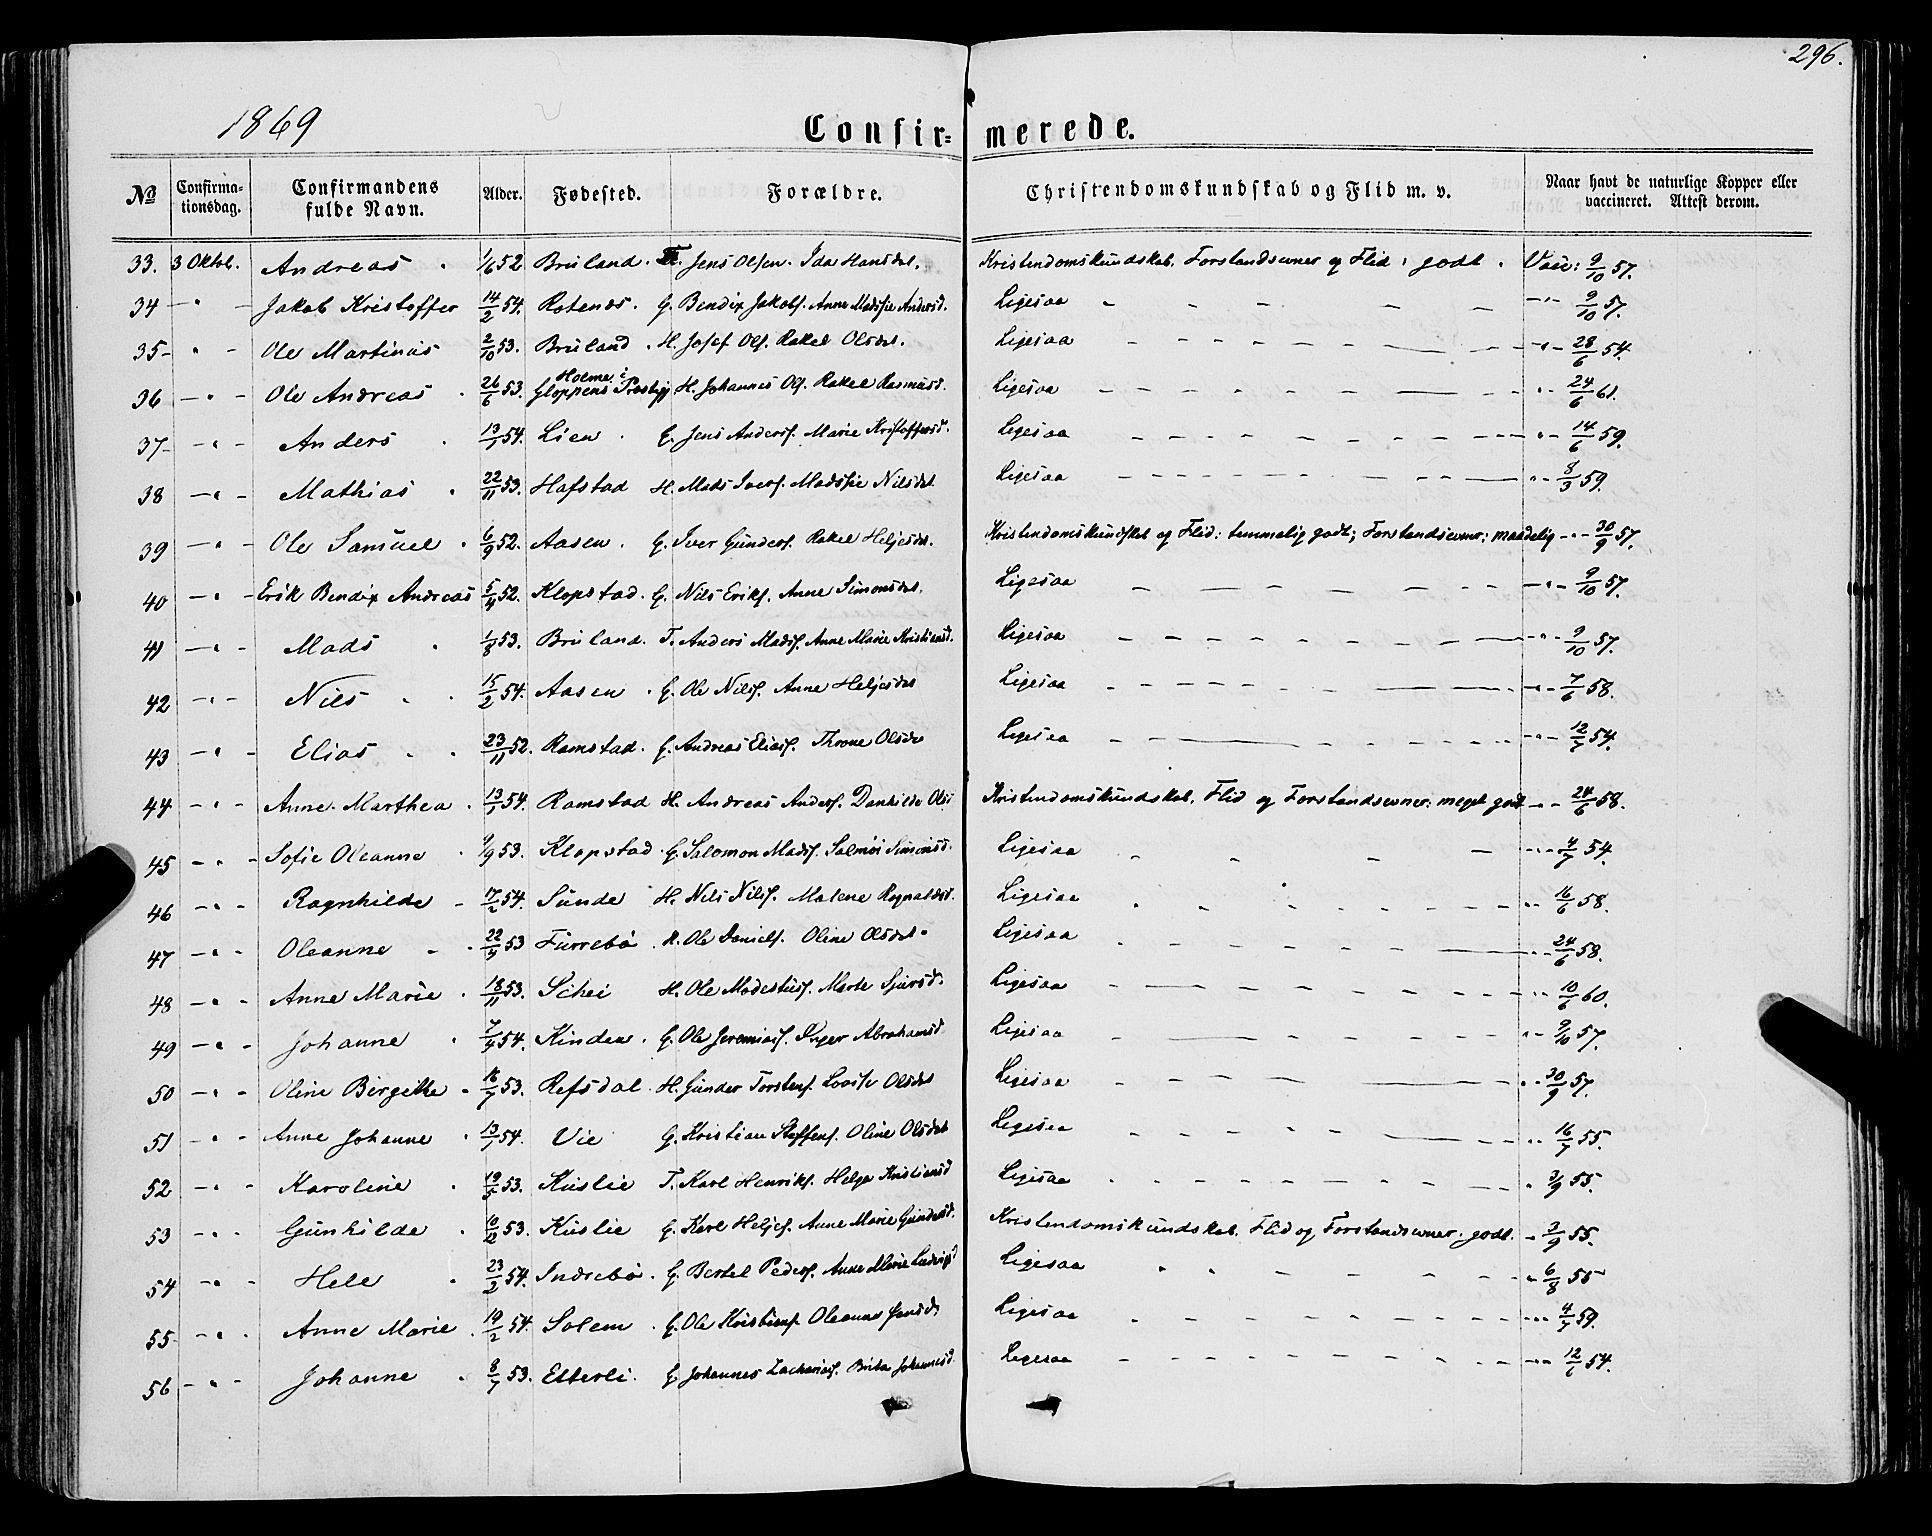 296.
1869
Confir= merede.
№ Confirma-tionsdag. Confirmandens fulde Navn. Alder. Fødested. Forældre. Christendomskundskab og Flid m. v. Naar havt de naturlige Kopper eller vaccineret. Attest derom.
33. 3 Oktob. Andreas 1/6 52 Bruland. Jens Olsen. Ida Hansdat. Kristendomskundskab, Forstandsevner og Flid: godt. Vacc: 9/10 57.
34 - " - Jakob Kristoffer 14/2 54. Rotenæs. G. Bendix Jakobs. Anne Madsie Andersd. Ligesaa - " - 9/10 57.
35 - " - Ole Martinus 2/10 53. Bruland. H. Josef Ols. Rakel Olsdat. Ligesaa - " - 28/6 54.
36 - " - Ole Andreas 26/6 53. Holme i Gloppens Præstgj H. Johannes Ols. Rakel Rasmusd. Ligesaa " - 24/6 61.
37 - " - Anders 13/1 54. Lien. G. Jens Anders. Marie Kristoffersd. Ligesaa " - 14/6 59.
38 - " - Mathias 22/11 53. Hafstad H. Mads Ivers. Madsie Nilsdat. Ligesaa " - 8/3 59.
39 - " - Ole Samuel 6/9 52. Aasen. G. Iver Gunders. Rakel Heljesdat. Kristendomskundskab og Flid: temmelig godt; Forstandsevner: maadelig - " - 30/9 57.
40 - " - Erik Bendix Andreas 5/4 52. Klopstad. G. Nils Eriks. Anne Simonsdat. Ligesaa - " - 9/10 57.
41 - " - Mads 1/8 53. Bruland. T. Anders Mads. Anne Marie Kristiansd. Ligesaa - " - 9/10 57.
42 - " - Nils 15/2 54. Aasen. G. Ole Nils. Anne Heljesdat Ligesaa - " - 7/6 58.
43 - " - Elias 23/11 52. Ramstad. G. Andreas Elias. Throne Olsdat Ligesaa - " - 12/7 54.
44 - " - Anne Marthea. 13/1 54. Ramstad H. Andreas Anders. Danhilde Olsd Kristendomskundskab, Flid og Forstandsevner: meget godt - " - 24/6 58.
45 - " - Sofie Oleanne 9/9 53. Klopstad. G. Salomon Mads. Salmøi Simonsd. Ligesaa - " - 4/7 54.
46 - " - Ragnhilde 17/2 54. Sunde H. Nils Nils. Malene Ragnaldsd. Ligesaa " - 16/6 58.
47 - " - Oleanne 22/4 53 Furrebø. H. Ole Daniels. Oline Olsdat. Ligesaa " - 24/6 58.
48 - " - Anne Marie 18/11 53. Schei H. Ole Modestus. Marte Sjursd. Ligesaa " - 10/6 60.
49 - " - Johanne 7/4 54. Kinden. G. Ole Jeremias. Inger Abrahamsd Ligesaa " - 9/10 57.
50 - " - Oline Birgitte 16/7 53. Refsdal. H. Gunder Torstens. Lovise Olsdat Ligesaa " - 30/9 57.
51 - " - Anne Johanne 13/1 54. Vie G. Kristian Steffens. Oline Olsdat Ligesaa " - 16/7 55.
52 - " - Karoline 19/5 53. Kuslie T. Karl Henriks. Helga Kristiansd Ligesaa " 3/9 55.
53 - " - Gunhilde 10/12 53. Kuslie G. Karl Heljes. Anne Marie Gundersd. Kristendomskundskab, Flid og Forstandsevner: godt. " 3/9 55.
54 - " - Hele 23/2 54. Indrebø. G. Bertel Peders. Anne Marie Ludvigsd Ligesaa " 6/8 55
55 - " - Anne Marie 19/2 54. Solem. G. Ole Kristens. Oleanne Jensd. Ligesaa - " - 4/7 59.
56 - " - Johanne 8/7 53. Etterli. G. Johannes Zacharias. Brita Johannesd. Ligesaa - " - 12/6 54.